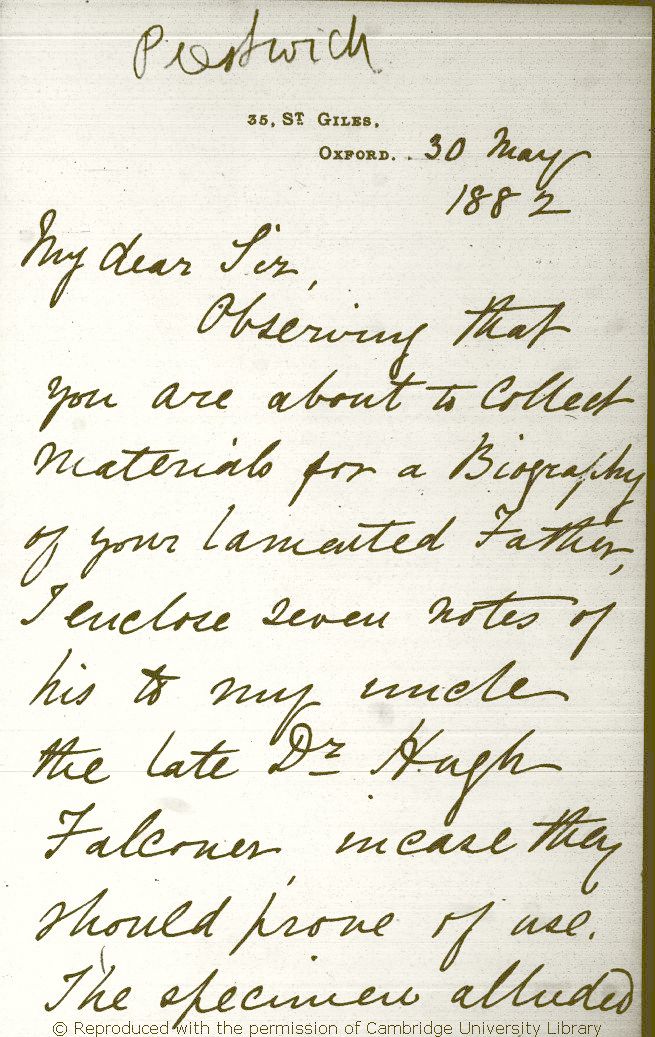 Prestwich
35, ST. GILES,
OXFORD. . 30 May
1882
My dear Sir,
Observing that
you are about to collect
materials for a Biography
of your lamented Father,
I enclose seven notes of
his to my uncle
the late Dr Hugh
Falconer, incase they
should prove of use.
The specimen alluded
© Reproduced with the permission of Cambridge University Library